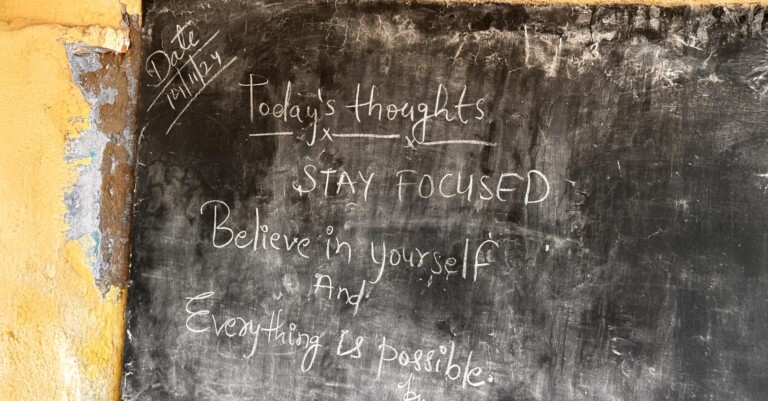 Date
Today's thoughts
STAY FOCUSED
Believe in yourself
And
Everything is possible.